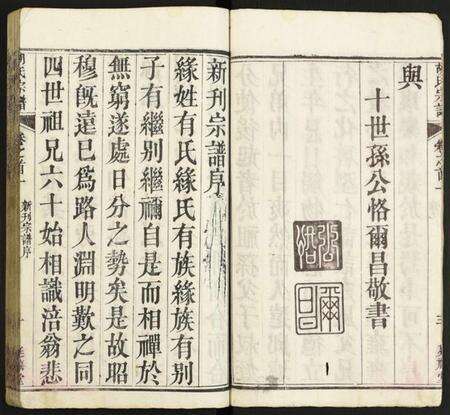 與
十世孫公恪爾昌敬書
新刊宗譜序
緣姓有氏緣氏有族緣族有別
子有繼別繼禰自是而相禪於
無窮遂處日分之勢矣是故昭
穆旣遠已爲路人淵明歎之同
四世祖兄六十始相識涪翁悲
胡氏宗譜
卷之首一
新刊宗譜序